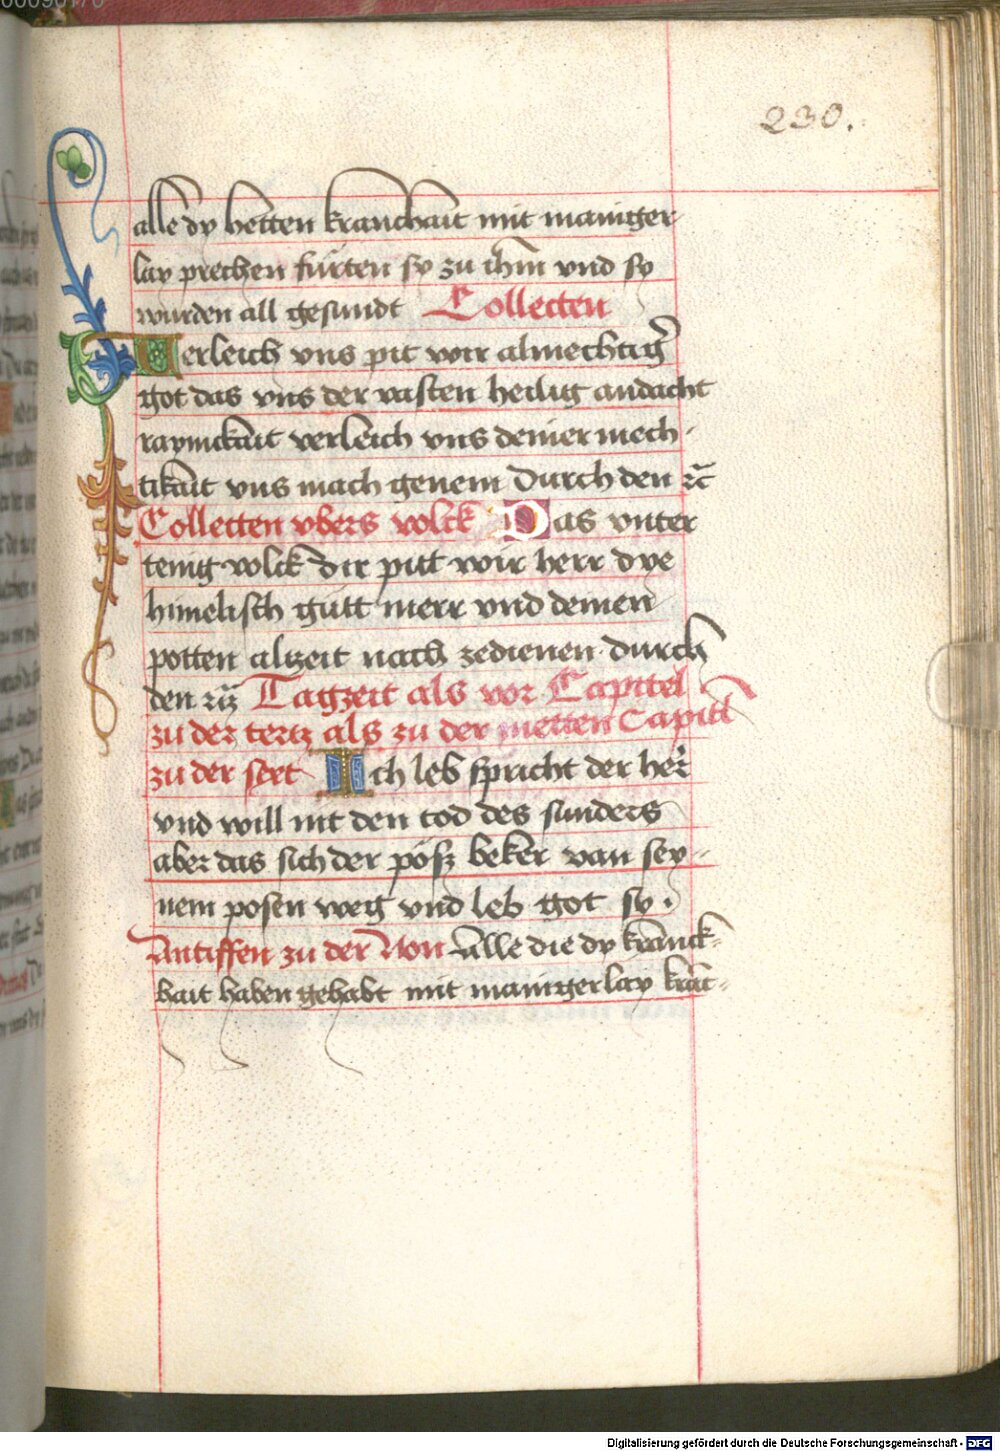 230.
alle dy hetten kranchait mit maniger
lay prechen fürten sy zu ihm vnd sy
wurden all gesundt Collecten
Verleich vns pit wir almechtiger
got das vns der vasten heilig andacht
raynickait verleich vns deiner mech-
tikait vns mach genem Durch den rc
Collecten vbers volck Das vnter
tenig volck dir pitt wir herr dye
himelisch gütt merr vnd deinen
potten alzeit nach zedienen durch
den rc Tagzeit als vor Capitel
zu der tertz als zu der metten Capittl
zu der sext Ich leb spricht der her
vnd will nit den tod des sunders
aber das sich der pösz beker van sey-
nem posen weg vnd leb got sy
Antiffen zu der Non Alle die dy kranck-
hait haben gehabt mit maniger lay kran-
Digitalisierung gefördert durch die Deutsche Forschungsgemeinschaft - DFG